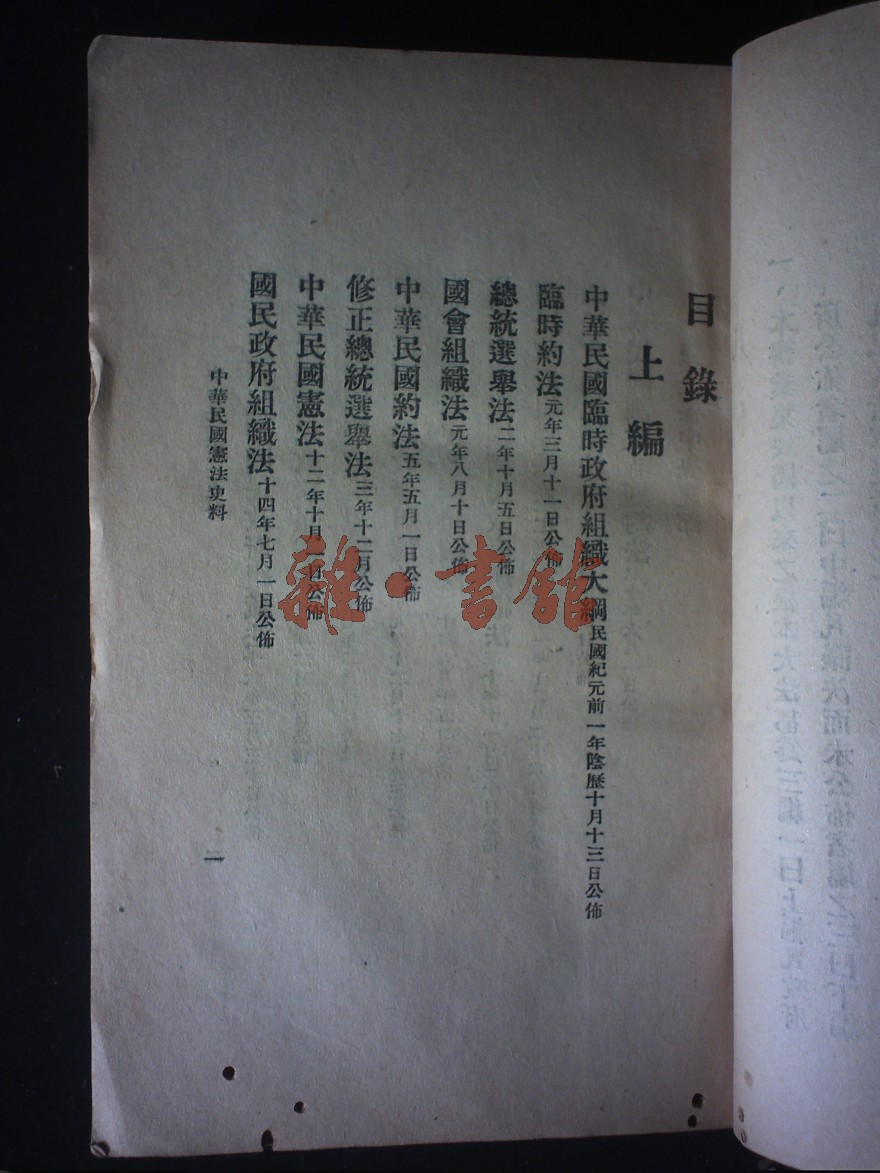 目錄
上編
中華民國臨時政府組織大綱民國紀元前一年陰歷十月十三日公佈
臨時約法元年三月十一日公佈
總統選舉法二年十月五日公佈
國會組織法元年八月十日公佈
中華民國約法五年五月一日公佈
修正總統選舉法三年十二月公佈
中華民國憲法十二年十月一日公佈
國民政府組織法十四年七月一日公佈
中華民國憲法史料
二
雜·書館